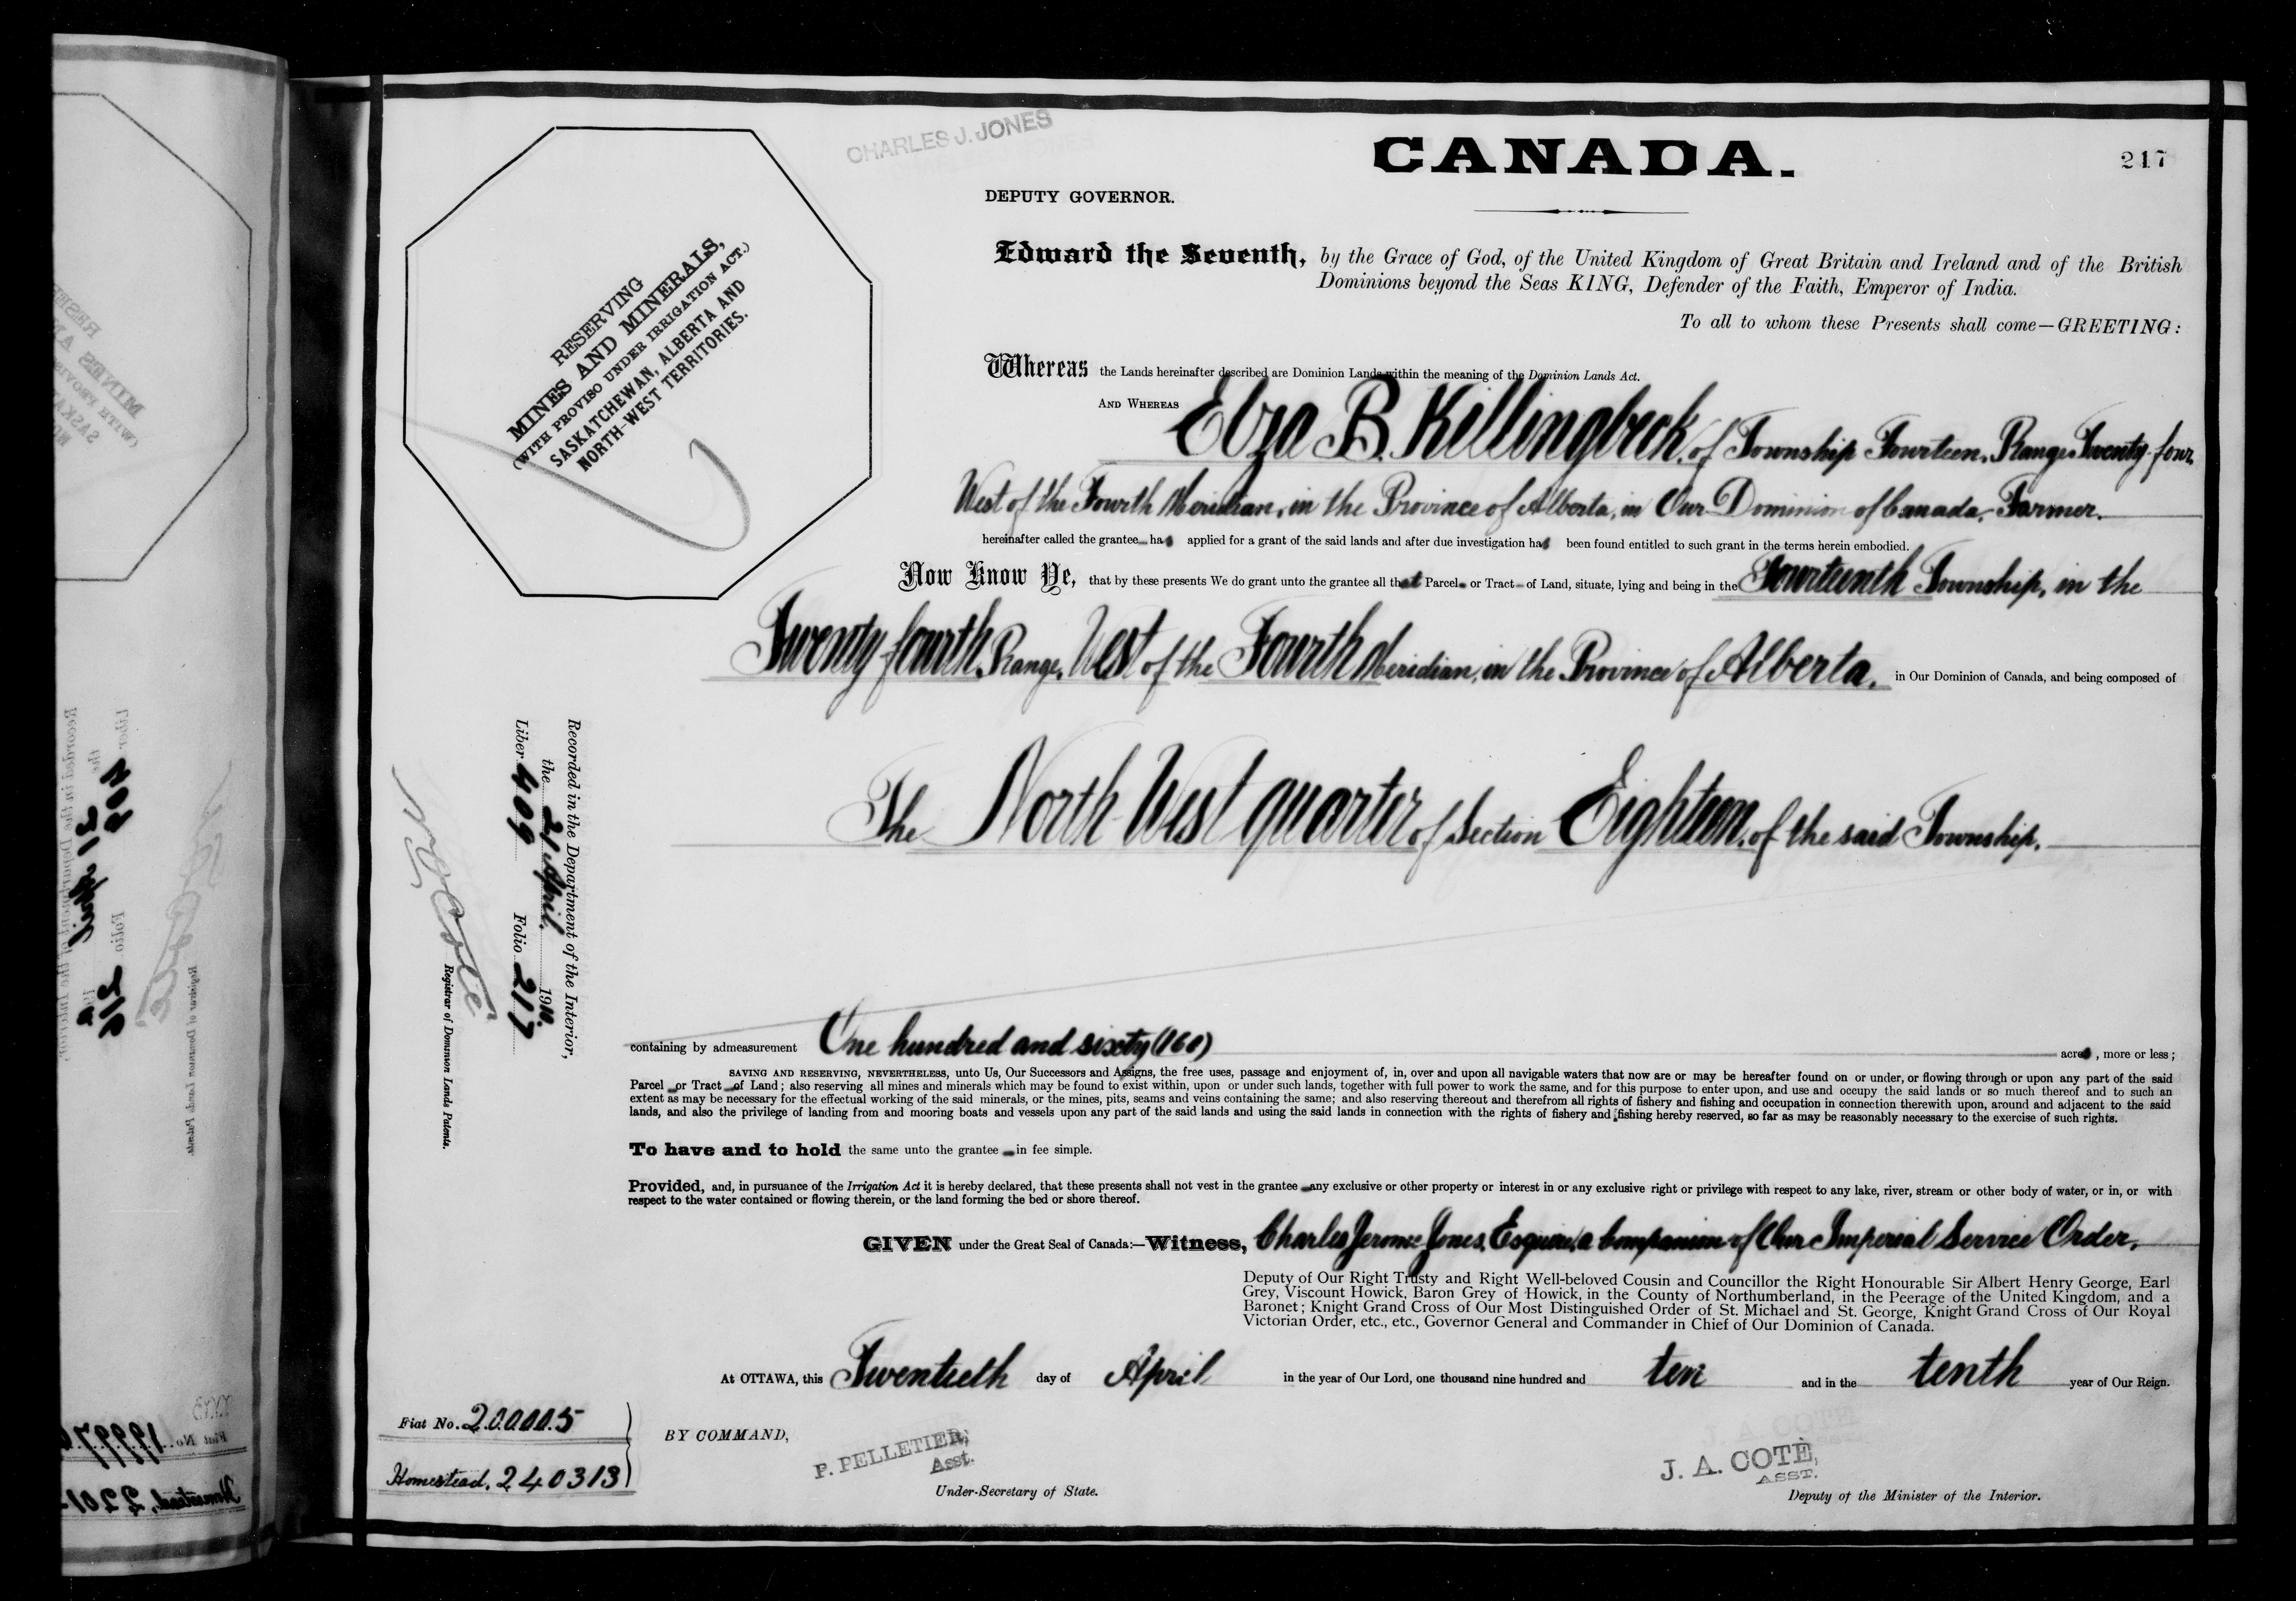 CHARLES J. JONES
CANADA.
217
DEPUTY GOVERNOR.
RESERVING
MINES AND MINERALS,
(WITH PROVISO UNDER IRRIGATION ACT.)
SASKATCHEWAN, ALBERTA AND
NORTH-WEST TERRITORIES.
Edward the Seventh, by the Grace of God, of the United Kingdom of Great Britain and Ireland and of the British
Dominions beyond the Seas KING, Defender of the Faith, Emperor of India.
To all to whom these Presents shall come—GREETING:
Whereas the Lands hereinafter described are Dominion Lands within the meaning of the Dominion Lands Act.
AND WHEREAS Elza B. Killingbeck, of Township Fourteen, Range Twenty-four,
West of the Fourth Meridian, in the Province of Alberta, in Our Dominion of Canada, Farmer.
hereinafter called the grantee has applied for a grant of the said lands and after due investigation has been found entitled to such grant in the terms herein embodied.
Now Know Ye, that by these presents We do grant unto the grantee all that Parcel or Tract of Land, situate, lying and being in the Fourteenth Township, in the
Twenty fourth Range, West of the Fourth Meridian, in the Province of Alberta, in Our Dominion of Canada, and being composed of
The North West quarter of Section Eighteen, of the said Township.
Recorded in the Department of the Interior,
the 21 April. 1910.
Liber 409 Folio 217
Registrar of Dominion Lands Patents.
containing by admeasurement One hundred and sixty (160) acres, more or less;
SAVING AND RESERVING, NEVERTHELESS, unto Us, Our Successors and Assigns, the free uses, passage and enjoyment of, in, over and upon all navigable waters that now are or may be hereafter found on or under, or flowing through or upon any part of the said
Parcel or Tract of Land; also reserving all mines and minerals which may be found to exist within, upon or under such lands, together with full power to work the same, and for this purpose to enter upon, and use and occupy the said lands or so much thereof and to such an
extent as may be necessary for the effectual working of the said minerals, or the mines, pits, seams and veins containing the same; and also reserving thereout and therefrom all rights of fishery and fishing and occupation in connection therewith upon, around and adjacent to the said
lands, and also the privilege of landing from and mooring boats and vessels upon any part of the said lands and using the said lands in connection with the rights of fishery and fishing hereby reserved, so far as may be reasonably necessary to the exercise of such rights.
To have and to hold the same unto the grantee in fee simple.
Provided, and, in pursuance of the Irrigation Act it is hereby declared, that these presents shall not vest in the grantee any exclusive or other property or interest in or any exclusive right or privilege with respect to any lake, river, stream or other body of water, or in, or with
respect to the water contained or flowing therein, or the land forming the bed or shore thereof.
GIVEN under the Great Seal of Canada:—Witness, Charles Jerome Jones, Esquire, a Companion of Our Imperial Service Order,
Deputy of Our Right Trusty and Right Well-beloved Cousin and Councillor the Right Honourable Sir Albert Henry George, Earl
Grey, Viscount Howick, Baron Grey of Howick, in the County of Northumberland, in the Peerage of the United Kingdom, and a
Baronet; Knight Grand Cross of Our Most Distinguished Order of St. Michael and St. George, Knight Grand Cross of Our Royal
Victorian Order, etc., etc., Governor General and Commander in Chief of Our Dominion of Canada.
At OTTAWA, this Twentieth day of April in the year of Our Lord, one thousand nine hundred and ten and in the tenth year of Our Reign.
Fiat No. 200005
Homestead, 240313
BY COMMAND,
P. PELLETIER,
Asst.
Under-Secretary of State.
J. A. COTÉ,
ASST.
Deputy of the Minister of the Interior.